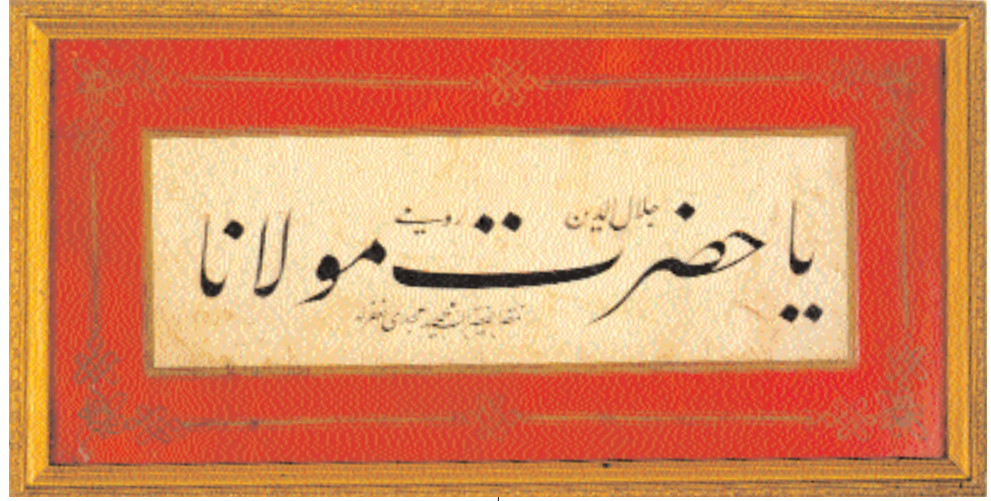 يا حضرت مولانا
جلال الدين رومى